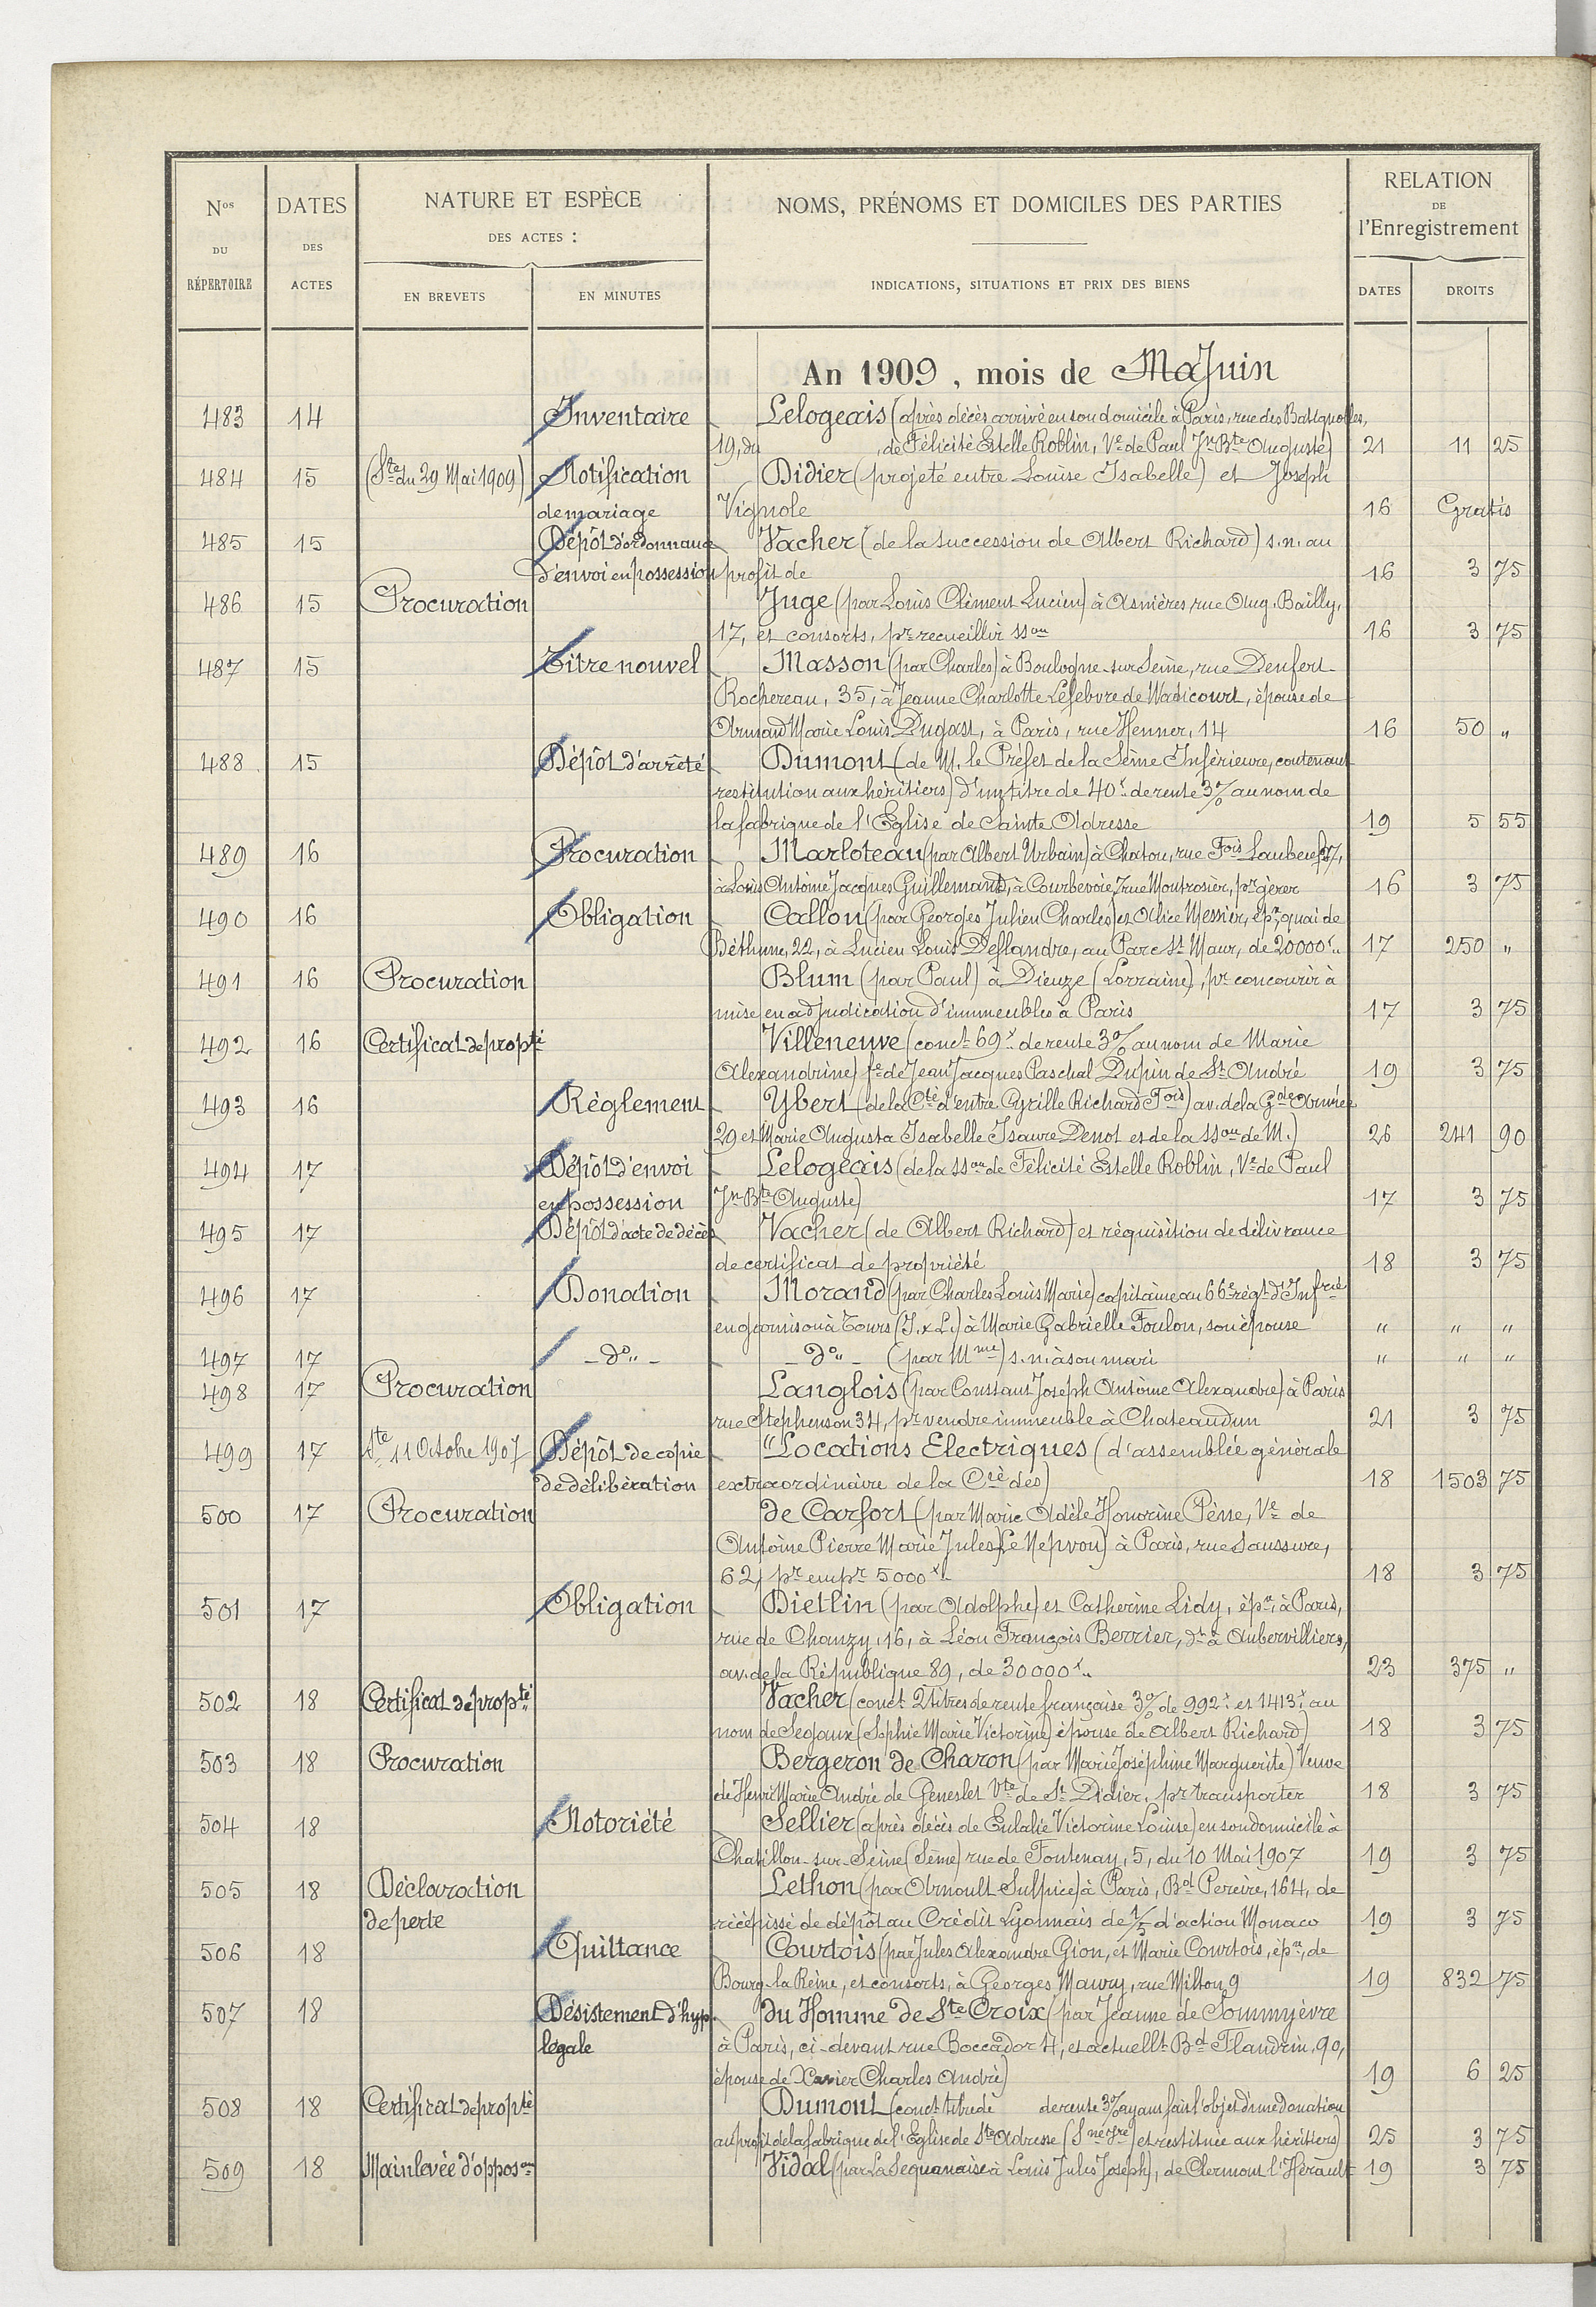 Nos DU RÉPERTOIRE
DATES DES ACTES
NATURE ET ESPÈCE DES ACTES :
EN BREVETS
EN MINUTES
NOMS, PRÉNOMS ET DOMICILES DES PARTIES
INDICATIONS, SITUATIONS ET PRIX DES BIENS
RELATION DE l'Enregistrement
DATES
DROITS
An 1909, mois de Juin
483 14 Inventaire Lelogeais (après décès arrivé en son domicile à Paris, rue des Batignolles,
19, du , de Félicité Estelle Roblin, Ve de Paul Jn Bte Auguste) 21 11 25
484 15 (Ste du 29 Mai 1909) Notification Didier (projeté entre Louise Isabelle) et Joseph
de mariage Vignole 16 Gratis
485 15 Dépôt d'ordonnance Vacher (de la succession de Albert Richard) s.n. au
d'envoi en possession profit de 16 3 75
486 15 Procuration Juge (par Louis Clément Lucien) à Asnières, rue Aug. Bailly,
17, et consorts, pr recueillir sson 16 3 75
487 15 Titre nouvel Masson (par Charles) à Boulogne-sur-Seine, rue Denfert-
Rochereau, 35, à Jeanne Charlotte Lefebvre de Wadicourt, épouse de
Armand Marie Louis Dugast, à Paris, rue Henner, 14 16 50 "
488 15 Dépôt d'arrêté Dumont (de M. le Préfet de la Seine Inférieure, contenant
restitution aux héritiers) d'un titre de 40f. de rente 3% au nom de
la fabrique de l'Eglise de Sainte Adresse 19 5 55
489 16 Procuration Marloteau (par Albert Urbain) à Chatou, rue Fois Laubeuf 27,
à Louis Antoine Jacques Guillemard, à Courbevoie, 7 rue Montrosier, pr gérer 16 3 75
490 16 Obligation Callon (par Georges Julien Charles) et Alice Messier, épx, quai de
Béthune, 22, à Lucien Louis Deflandre, au Parc St Maur, de 20000f. 17 250 "
491 16 Procuration Blum (par Paul) à Dieuze (Lorraine), pr concourir à
mise en adjudication d'immeubles à Paris 17 3 75
492 16 Certificat de propté Villeneuve (conct 69f. de rente 3% au nom de Marie
Alexandrine) fe de Jean Jacques Paschal Dupin de St André 19 3 75
493 16 Règlement Ybert (de la Cté d'entre Cyrille Richard Fois) av. de la Gde Armée
29 et Marie Augusta Isabelle Isaure Denot et de la sson de M.) 26 241 90
494 17 Dépôt d'envoi Lelogeais (de la sson de Félicité Estelle Roblin, Ve de Paul
en possession Jn Bte Auguste) 17 3 75
495 17 Dépôt d'acte de décès Vacher (de Albert Richard) et réquisition de délivrance
de certificat de propriété 18 3 75
496 17 Donation Morand (par Charles Louis Marie) capitaine au 66e régt d'Infrie
en garnison à Tours (I. & L.) à Marie Gabrielle Foulon, son épouse " " "
497 17 - do - - do - (par Mme) s.n. à son mari " " "
498 17 Procuration Langlois (par Constant Joseph Antoine Alexandre) à Paris
rue Stephenson 34, pr vendre immeuble à Chateaudun 21 3 75
499 17 Ste 11 Octobre 1907 Dépôt de copie "Locations Electriques (d'assemblée générale
de délibération extraordinaire de la Cie des) 18 1503 75
500 17 Procuration de Carfort (par Marie Adèle Honorine Pène, Ve de
Antoine Pierre Marie Jules Le Nepvou) à Paris, rue Saussure,
62, pr empr 5000f. 18 3 75
501 17 Obligation Dietlin (par Adolphe) et Catherine Lidy, épx, à Paris,
rue de Chanzy, 16, à Léon François Berrier, dt à Aubervilliers,
av. de la République 89, de 30000f. 23 375 "
502 18 Certificat de propté Vacher (conct 2 titres de rente française 3% de 992f. et 1413f. au
nom de Segaux (Sophie Marie Victorine) épouse de Albert Richard) 18 3 75
503 18 Procuration Bergeron de Charon (par Marie Joséphine Marguerite) Veuve
de Henri Marie André de Geneslet Vte de St Didier, pr transporter 18 3 75
504 18 Notoriété Sellier (après décès de Eulalie Victorine Louise) en son domicile à
Chatillon-sur-Seine (Seine) rue de Fontenay, 5, du 10 Mai 1907 19 3 75
505 18 Déclaration Lethon (par Arnoult Sulpice) à Paris, Bd Pereire, 164, de
de perte récépissé de dépôt au Crédit Lyonnais de 1/5 d'action Monaco 19 3 75
506 18 Quittance Courtois (par Jules Alexandre Gion, et Marie Courtois, épx, de
Bourg-la-Reine, et consorts, à Georges Maury, rue Milton, 9 19 832 75
507 18 Désistement d'hyp. du Homme de Ste Croix (par Jeanne de Sommyèvre
légale à Paris, ci-devant rue Boccador 4, et actuellt Bd Flandrin, 90,
épouse de Xavier Charles André) 19 6 25
508 18 Certificat de propté Dumont (conct titre de de rente 3% ayant fait l'objet d'une donation
au profit de la fabrique de l'Eglise de Ste Adresse (Sne Ire) et restituée aux héritiers) 25 3 75
509 18 Mainlevée d'opposon Vidal (par La Séquanaise à Louis Jules Joseph), de Clermont l'Hérault 19 3 75